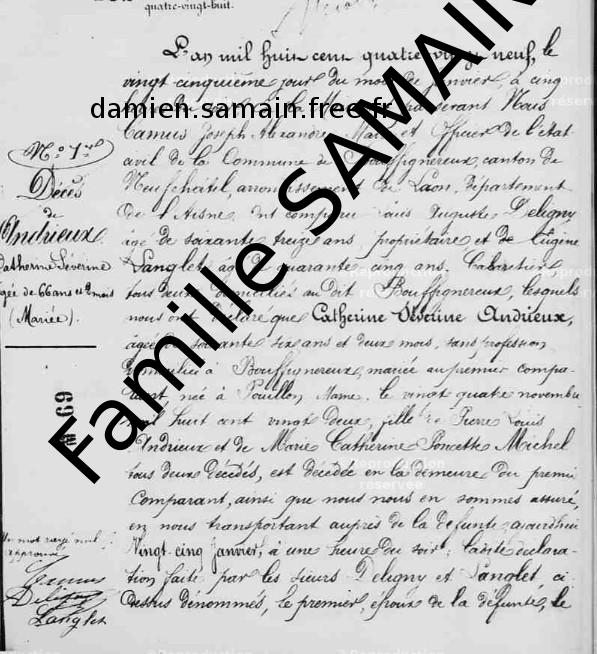 quatre-vingt-huit.
L'an mil huit cent quatre-vingt neuf, le
vingt cinquième jour du mois de janvier, à cinq
damien.samain.free.fr
Camus Joseph Alexandre Maire et Officier de l'état
civil de la Commune de Bouffignereux, canton de
Neufchâtel, arrondissement de Laon, département
de l'Aisne, ont comparu Louis Auguste Deligny
âgé de soixante treize ans, propriétaire et de Eugène
Langlet, âgé de quarante cinq ans, Cabaretier
tous deux domiciliés au dit Bouffignereux, lesquels
nous ont déclaré que Catherine Séverine Andrieux,
âgée de soixante six ans et deux mois, sans profession
domiciliée à Bouffignereux, mariée au premier compa-
rant, née à Pouillon, Marne, le vingt quatre novembre
mil huit cent vingt deux, fille de Pierre Louis
Andrieux et de Marie Catherine Poncette Michel
tous deux décédés, est décédée en la demeure du premier
comparant, ainsi que nous nous en sommes assuré,
en nous transportant auprès de la défunte aujourd'hui
vingt-cinq janvier, à une heure du soir; ladite déclara-
tion faite par les sieurs Deligny et Langlet, ci-
dessus dénommés, le premier, époux de la défunte, le
No 1er
Décès
de
Andrieux
Catherine Séverine
âgée de 66 ans et 2 mois
(Mariée).
69
Un mot rayé nul
approuvé
Camus
Deligny
Langlet
Famille SAMAIN
Reproduction
réservée